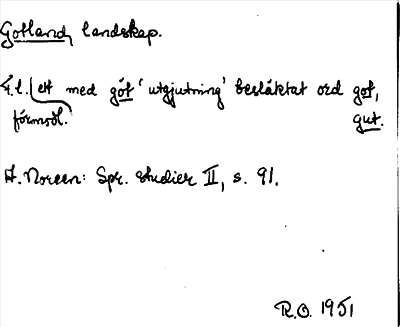 Gotland, landskap.
F.l. ett med gót 'utgjutning' besläktat ord got,
förmodl. gut.
A. Noreen: Spr. studier II, s. 91.
R.O. 1951